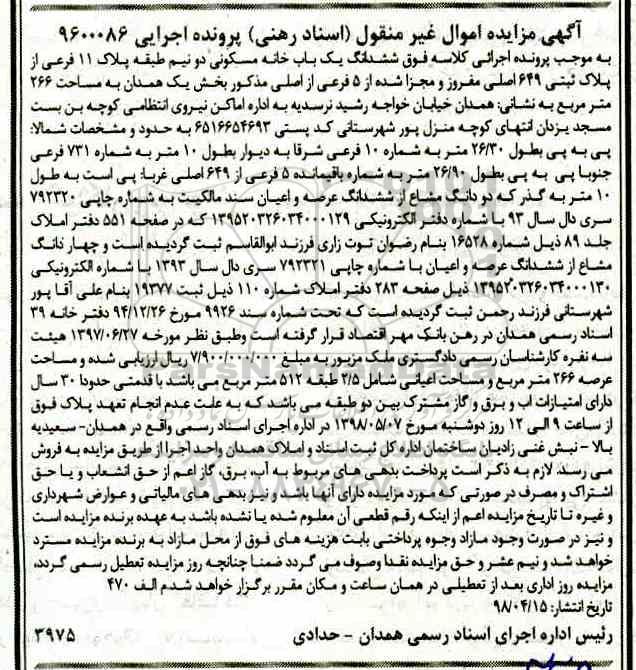 آگهی مزایده اموال غیر منقول (اسناد رهنی) پرونده اجرایی ۹۶۰۰۰۸۶
به موجب پرونده اجرائی کلاسه فوق ششدانگ یک باب خانه مسکونی دو نیم طبقه پلاک ۱۱ فرعی از
پلاک ثبتی ۶۴۹ اصلی مفروز و مجزا شده از ۵ فرعی از اصلی مذکور بخش یک همدان به مساحت ۲۶۶
متر مربع به نشانی: همدان خیابان خواجه رشید نرسدیه به اداره اماکن نیروی انتظامی کوچه بن بست
مسجد یزدان انتهای کوچه منزل پور شهرستانی کد پستی ۶۵۱۶۶۵۴۶۹۳ به حدود و مشخصات شمالا:
پی به پی بطول ۲۶/۳۰ متر به شماره ۱۰ فرعی شرقا به دیوار بطول ۱۰ متر به شماره ۷۳۱ فرعی
جنوبا پی به پی بطول ۲۶/۹۰ متر به شماره باقیمانده ۵ فرعی از ۶۴۹ اصلی غربا: پی است به طول
۱۰ متر به گذر که دو دانگ مشاع از ششدانگ عرصه و اعیان سند مالکیت به شماره چاپی ۷۹۲۳۲۰
سری دال سال ۹۳ با شماره دفتر الکترونیکی ۱۳۹۵۲۰۳۲۶۰۳۴۰۰۰۱۲۹ که در صفحه ۵۵۱ دفتر املاک
جلد ۸۹ ذیل شماره ۱۶۵۲۸ بنام رضوان توت زاری فرزند ابوالقاسم ثبت گردیده است و چهار دانگ
مشاع از ششدانگ عرصه و اعیان با شماره چاپی ۷۹۲۳۲۱ سری دال سال ۱۳۹۳ با شماره الکترونیکی
۱۳۹۵۲۰۳۲۶۰۳۴۰۰۰۱۳۰ ذیل صفحه ۲۸۳ دفتر املاک شماره ۱۱۰ ذیل ثبت ۱۹۳۷۷ بنام علی آقا پور
شهرستانی فرزند رحمن ثبت گردیده است که تحت شماره سند ۹۹۲۶ مورخ ۹۴/۱۲/۲۶ دفتر خانه ۳۹
اسناد رسمی همدان در رهن بانک مهر اقتصاد قرار گرفته است وطبق نظر مورخه ۱۳۹۷/۰۶/۲۷ هیئت
سه نفره کارشناسان رسمی دادگستری ملک مزبور به مبلغ ۷/۹۰۰/۰۰۰/۰۰۰ ریال ارزیابی شده و مساحت
عرصه ۲۶۶ متر مربع و مساحت اعیانی شامل ۲/۵ طبقه ۵۱۲ متر مربع می باشد با قدمتی حدودا ۳۰ سال
دارای امتیازات اب و برق و گاز مشترک بین دو طبقه می باشد که به علت عدم انجام تعهد پلاک فوق
از ساعت ۹ الی ۱۲ روز دوشنبه مورخ ۱۳۹۸/۰۵/۰۷ در اداره اجرای اسناد رسمی واقع در همدان- سعیدیه
بالا - نبش غنی زادیان ساختمان اداره کل ثبت اسناد و املاک همدان واحد اجرا از طریق مزایده به فروش
می رسد. لازم به ذکر است پرداخت بدهی های مربوط به آب، برق، گاز اعم از حق انشعاب و یا حق
اشتراک و مصرف در صورتی که مورد مزایده دارای آنها باشد و نیز بدهی های مالیاتی و عوارض شهرداری
و غیره تا تاریخ مزایده اعم از اینکه رقم قطعی آن معلوم شده یا نشده باشد به عهده برنده مزایده است
و نیز در صورت وجود مازاد وجوه پرداختی بابت هزینه های فوق از محل مازاد به برنده مزایده مسترد
خواهد شد و نیم عشر و حق مزایده نقدا وصوف می گردد ضمنا چنانچه روز مزایده تعطیل رسمی گردد،
مزایده روز اداری بعد از تعطیلی در همان ساعت و مکان مقرر برگزار خواهد شد.م الف ۴۷۰
تاریخ انتشار: ۹۸/۰۴/۱۵
رئیس اداره اجرای اسناد رسمی همدان - حدادی ۳۹۷۵
ParsNamadData